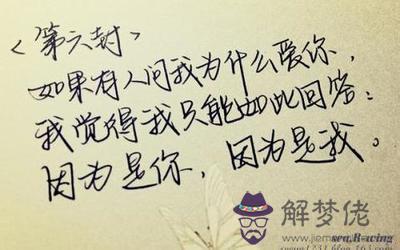 <第六封>
如果有人问我为什么爱你,
我觉得我只能如此回答:
因为是你,因为是我。
解梦佬